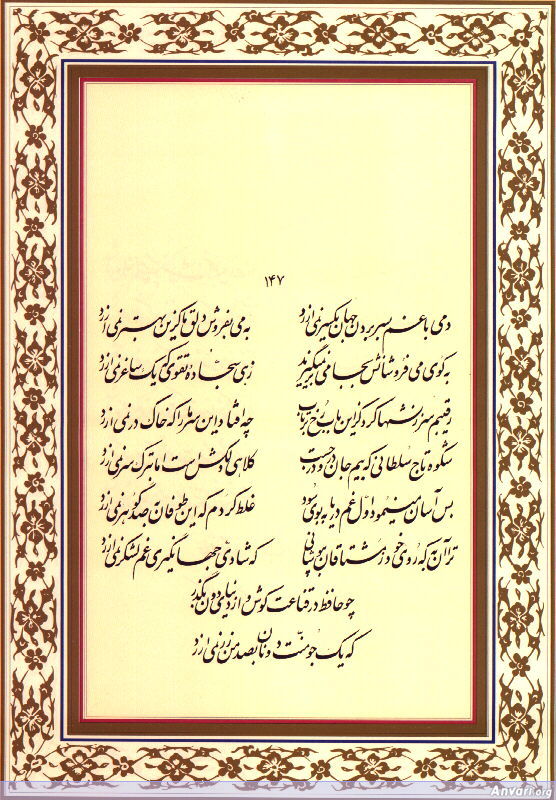 ۱۴۷
دمی با غم بسر بردن جهان یکسر نمی ارزد به می بفروش دلق ما کزین بهتر نمی ارزد
به کوی می فروشانش بجامی بر نمیگیرند زهی سجاده تقوی که یک ساغر نمی ارزد
رقیبم سرزنشها کرد کز این باب رخ برتاب چه افتاد این سر ما را که خاک در نمی ارزد
شکوه تاج سلطانی که بیم جان در و درجست کلاهی دلکش است اما بترک سر نمی ارزد
بس آسان مینمود اول غم دریا به بوی سود غلط کردم که این طوفان بصد گوهر نمی ارزد
ترا آن به که روی خود ز مشتاقان بپوشانی که شادی جهانگیری غم لشکر نمی ارزد
چو حافظ در قناعت کوش و از دنیای دون بگذر
که یک جو منت دونان بصد من زر نمی ارزد
Anvari.org